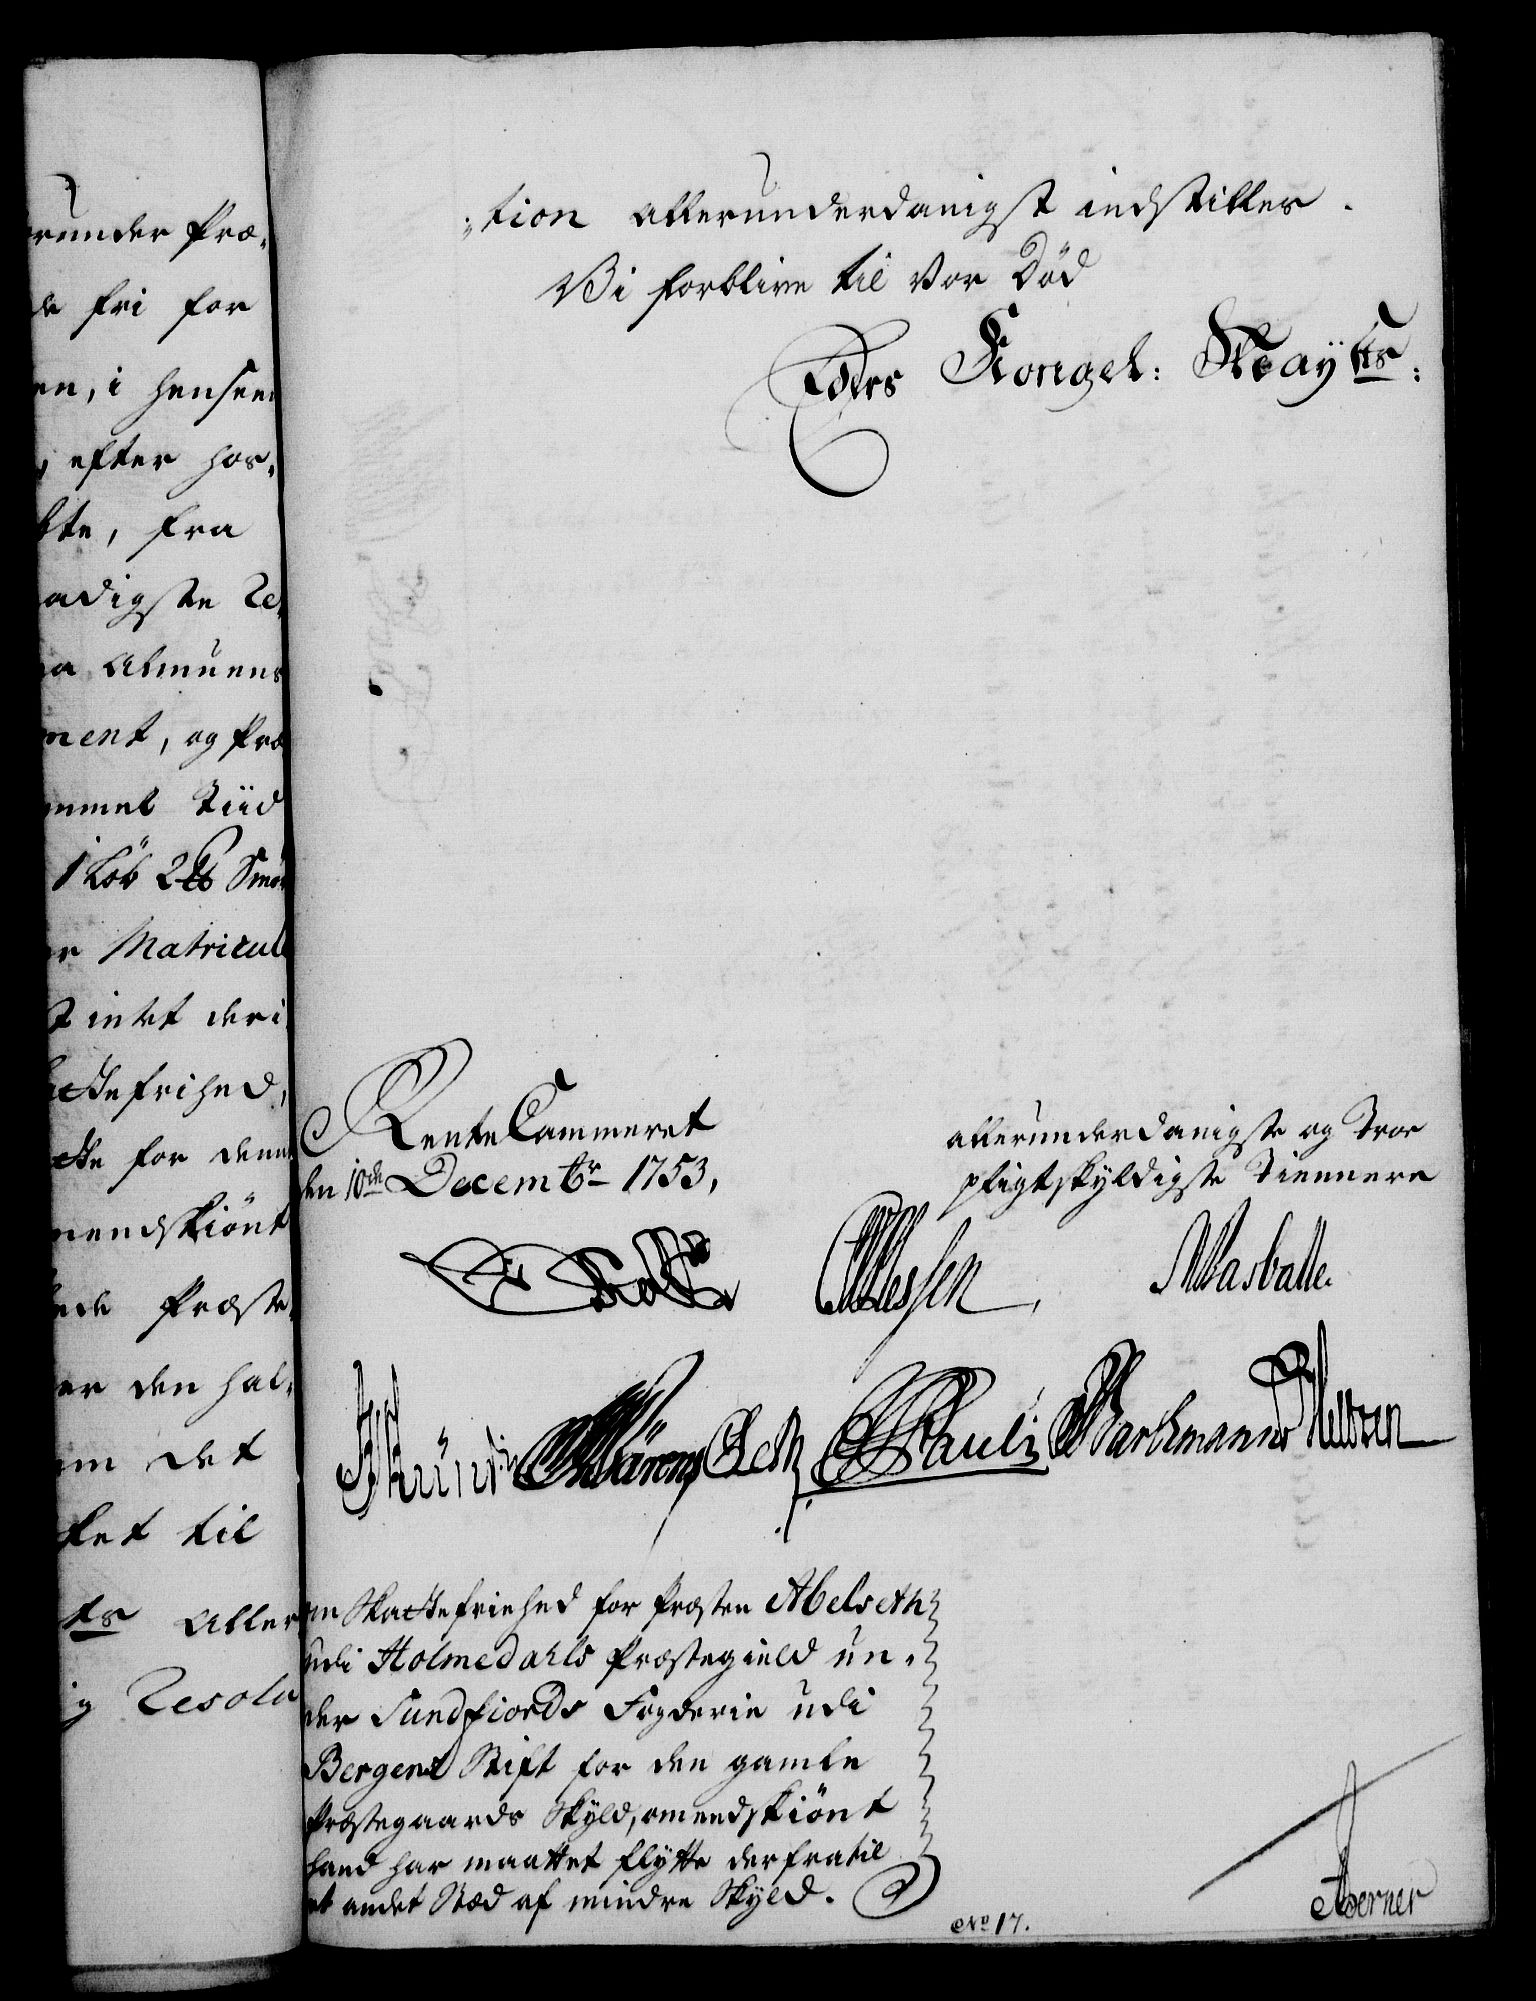 runder Præ-
de fri for
en, i henseen
efter hos-
te, fra
adigste Re-
a Almuens
ment, og Præ
ammel Tiid
1 Løb 2 ℔ Smør
er Matricul
t intet deri
attefrihed,
te for denne
mendskiønt
ede Præste-
er den hal-
m det
tet til
ts Aller
ig Resolu
:tion allerunderdanigst indstilles.
Vi forblive til vor Død
Eders Kongel: Mayts:
RenteCammeret
den 10de Decembr 1753,
allerunderdanigste og Troe
pligtskyldigste Tiennere
Wessen,
Masballe.
Pauli
Barthmann
om Skattefriehed for Præsten Abelseth
udi Holmedahls Præstegield un-
der Sundfiords Fogderie udi
Bergens Stift for den gamle
Præstegaards Skyld, omendskiønt
hand har maattet flytte derfra til
et andet Stæd af mindre Skyld.
No 17.
Aberner